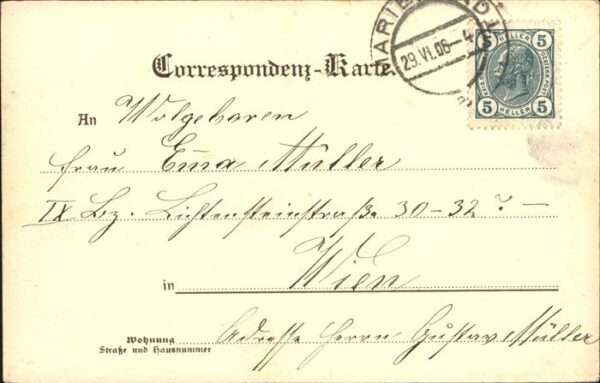 MARIENBAD
29.VI.06-4
5 HELLER 5
5 HELLER 5
Correspondenz-Karte.
An Wolgeboren
Frau Ema Müller
IX Bz. Lichtensteinstraße 30-32 ? —
in Wien
Wohnung
Straße und Hausnummer
Adresse Herrn Gustav Müller